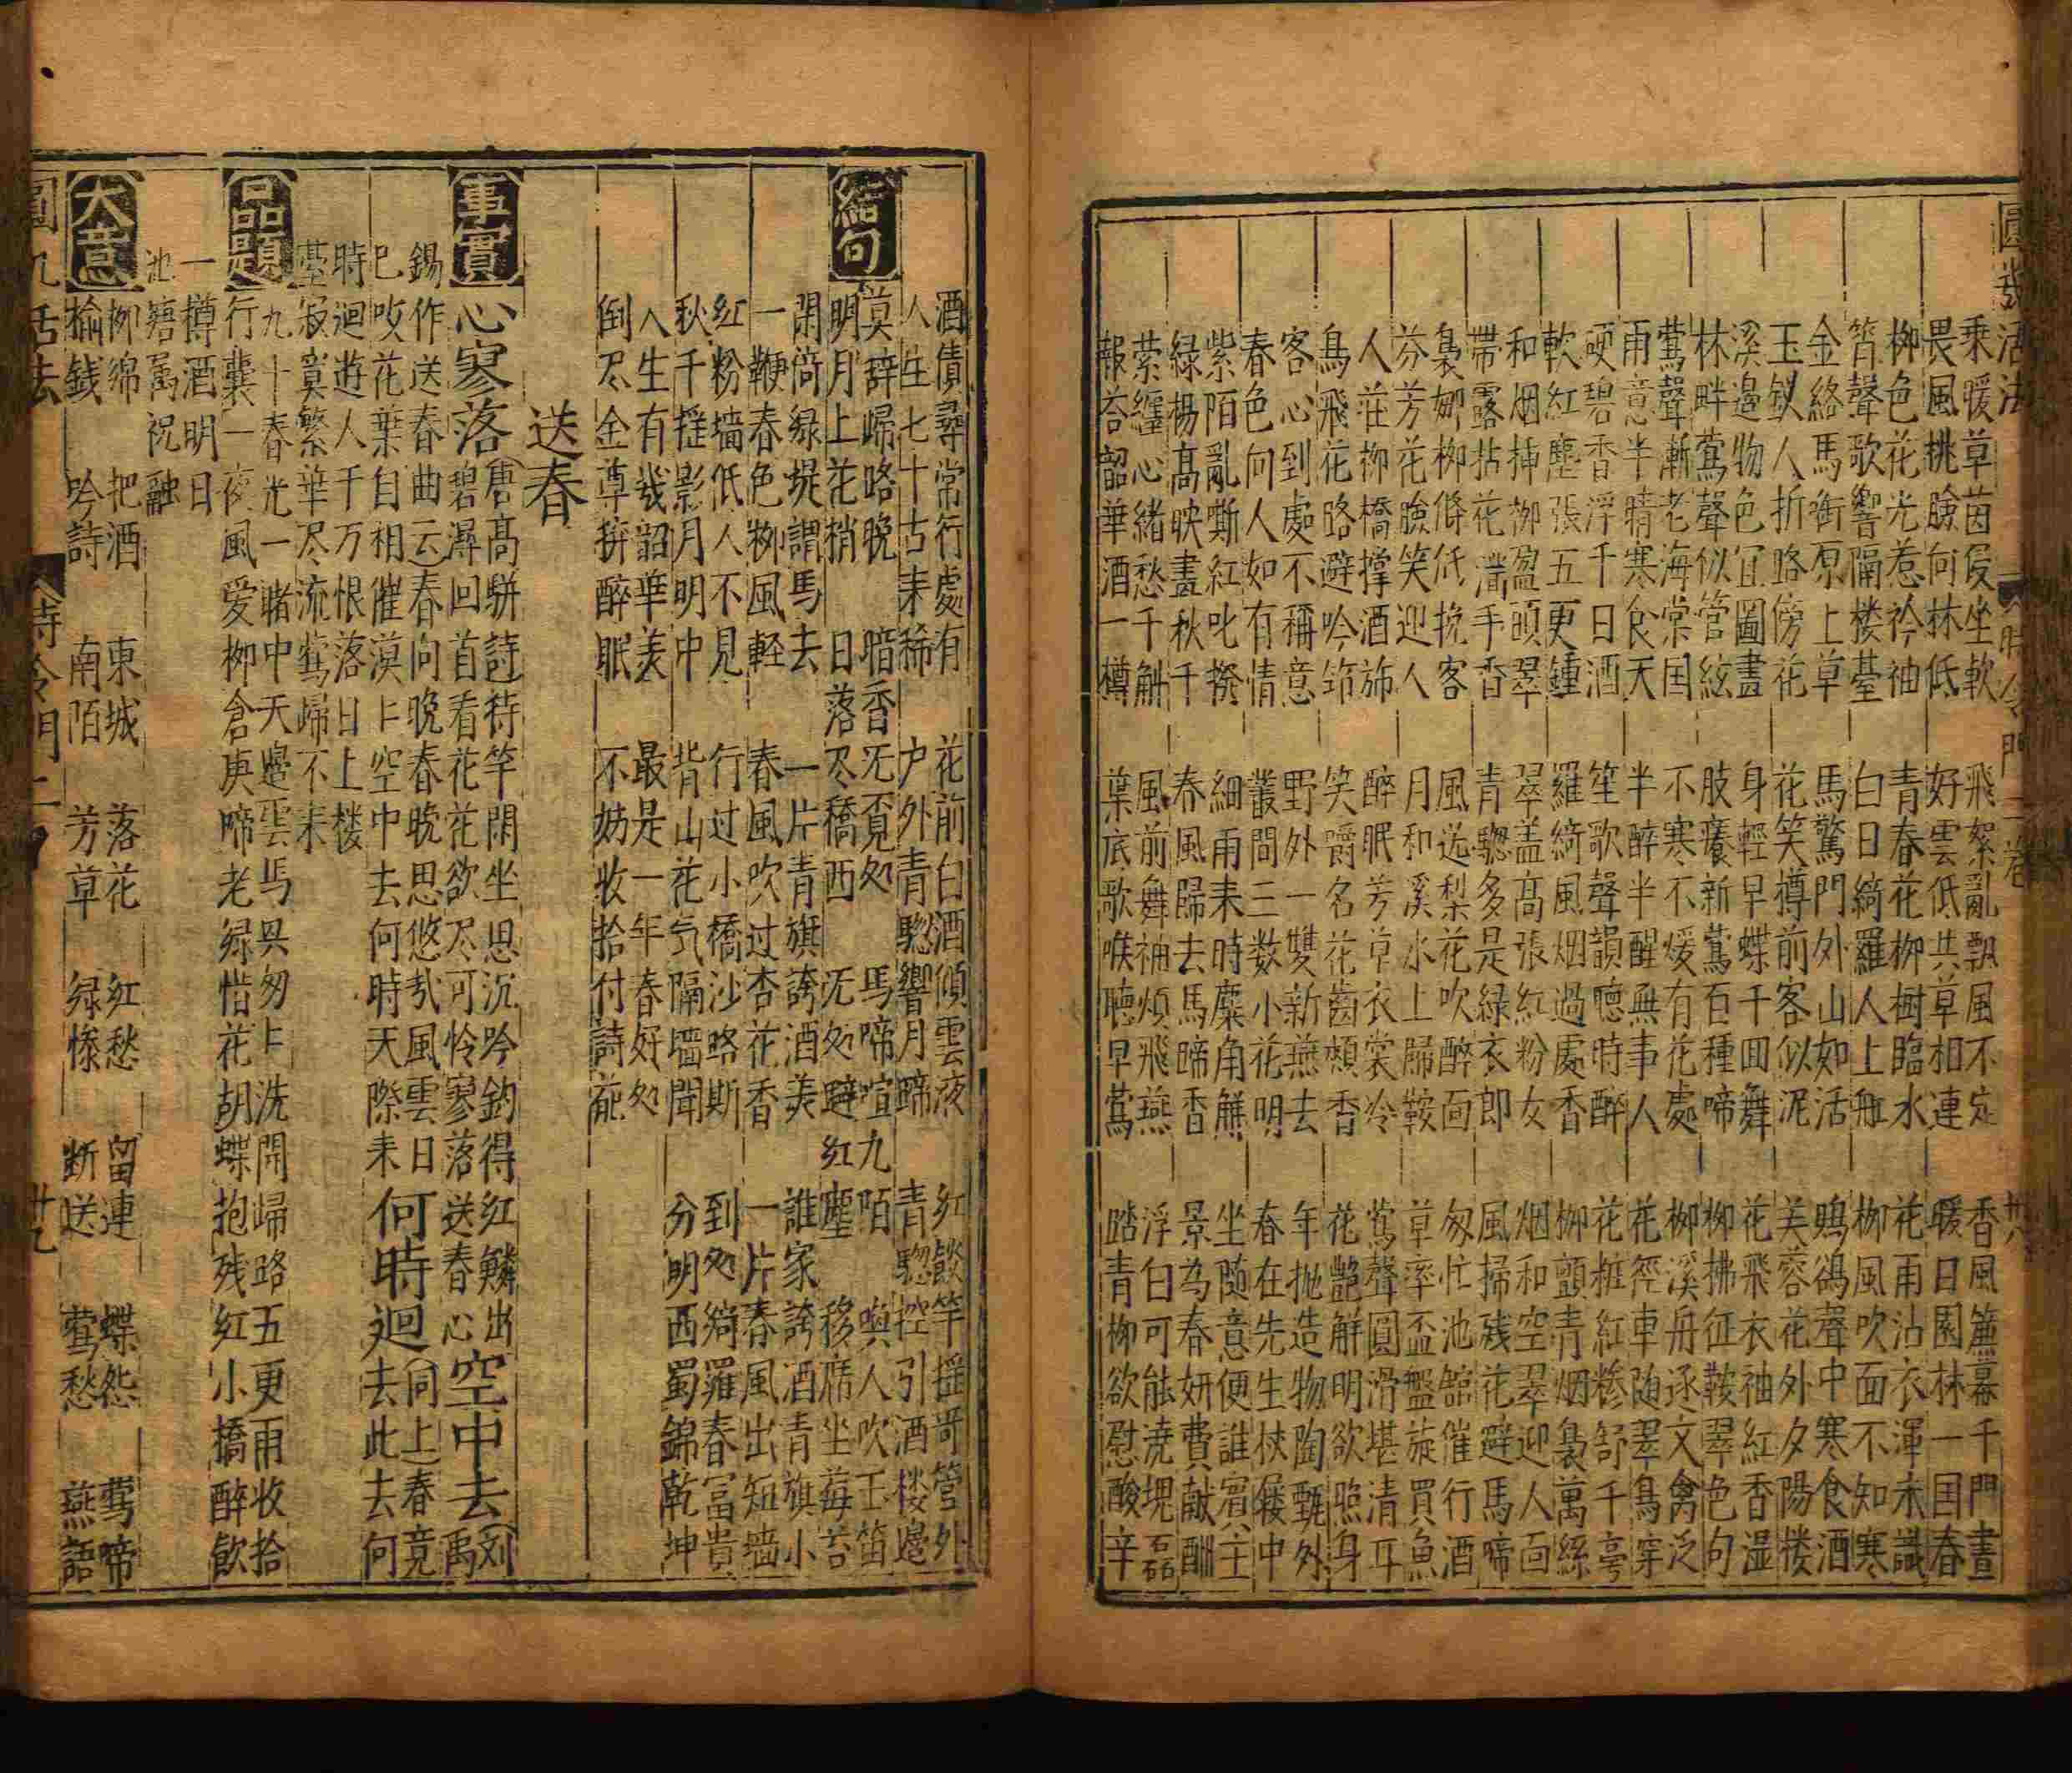 圓機活法 時令門 二卷 卅八
乗暖草茵侵坐軟 飛絮亂飄風不定 香風簾幕千門晝
畏風桃臉向林低 好雲低共草相連 暖日園林一囯春
柳色花光惹衿袖 青春花柳樹臨水 花雨沾衣渾未識
筲聲歌響隔楼䑓 白日綺羅人上舡 柳風吹面不知寒
金絡馬銜原上草 馬驚門外山如活 鵶鵒聲中寒食酒
玉釵人折路傍花 花笑樽前客似泥 芙蓉花外夕陽楼
溪邉物色宜圖畫 身輕早蝶千囬舞 花飛衣袖紅香湿
林畔鶯聲似管絃 肢癢新鶯百種啼 柳拂征鞍翠色句
鶯聲漸老海棠囯 不寒不煖有花處 柳溪丹逐文禽泛
雨意半晴寒食天 半醉半醒無事人 花徑車随翠鳥穿
硬碧香浮千日酒 笙歌聲韻聴時醉 花粧紅糝舒千亭
軟紅塵張五更鍾 羅綺風烟過處香 柳顫青烟裊萬絲
和烟揷柳盈頭翠 翠盖髙張紅粉女 烟和空翠迎人面
帶露拈花滿手香 青驄多是緑衣郎 風掃残花避馬啼
裊娜柳條低挽客 風送梨花吹醉面 匆忙池舘催行酒
芬芳花臉笑迎人 月和溪水上歸鞍 草率盃盤旋買魚
人莊柳橋撐酒斾 醉眠芳草衣裳冷 鶯聲圓滑堪清耳
鳥飛花路避吟筇 笑嚼名花齒頰香 花艶觧明欲照身
客心到處不稱意 野外一雙新燕去 年抛造物陶甄外
春色向人如有情 叢間三数小花明 春在先生杖屨中
紫陌亂嘶紅叱撥 細雨来時麋角觧 坐随意便誰賓主
緑楊髙映畫秋千 春風歸去馬蹄香 景为春妍費献酬
萦纏心緒愁千斛 風前舞袖煩飛燕 浮白可能澆塊磊
報荅韶華酒一樽 葉底歌喉聴早鶯 踏青柳欲慰酸辛
結句
酒債尋常行處有 花前白酒傾雲液 红燄竿揺哥管外
人生七十古来稀 户外青驄響月蹄 青驄控引酒楼邉
莫辞歸路晚 暗香无覓処 馬啼喧九陌 喚人吹玉笛
明月上花梢 日落尽橋西 无処避红塵 移席坐莓苔
閑倚緑堤謂馬去 一片青旗誇酒美 誰家誇酒青旗小
一鞭春色栁風軽 春風吹过杏花香 一片春風出短墻
红粉墻低人不見 行过小橋沙路斯 到処綺羅春富貴
秋千揺影月明中 背山花气隔墻聞 分明西蜀錦乾坤
人生有幾韶華美 最是一年春好処
倒尽金尊拚醉眠 不妨收拾付詩葩
送春
事實
心寥落
(唐髙駢詩)待竿閑坐思沉吟釣得红鱗出
碧潯回首看花花欲尽可怜寥落送春心
空中去
(刘禹
錫作送春曲云)春向晚春晚思悠㢤風雲日
已吹花葉自相催漠〻空中去何時天際来
何時迴
(同上)春竟
去此去何
時迴遊人千万恨落日上楼
䑓寂寞繁華尽流鶯歸不来
品題
九十春光一睹中天邉雲馬㒷匆〻洗開歸路五更雨收拾
行囊一夜風爱柳倉庚啼老緑惜花胡蝶抱残红小橋醉飲
一樽酒明日
池塘萬祝融
大意
柳绵 把酒 東城 落花 红愁 留連 蝶怨 鶯啼
榆銭 吟詩 南陌 芳草 緑惨 断送 鶯愁 燕語
圓机活法 時令門二 卅九